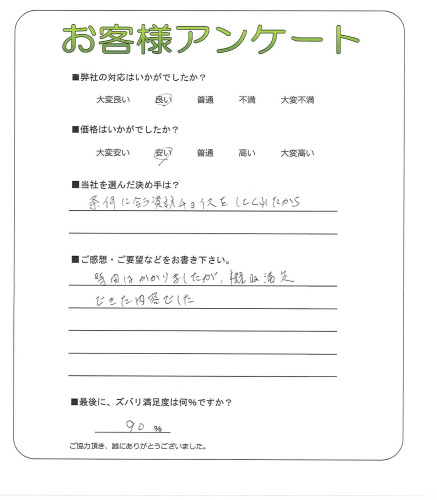 お客様アンケート
■弊社の対応はいかがでしたか？
大変良い 良い 普通 不満 大変不満
■価格はいかがでしたか？
大変安い 安い 普通 高い 大変高い
■当社を選んだ決め手は？
条件に合う チョイスをしてくれたから
■ご感想・ご要望などをお書き下さい。
時間はかかりましたが、概ね満足
できた内容でした
■最後に、ズバリ満足度は何％ですか？
90 ％
ご協力頂き、誠にありがとうございました。